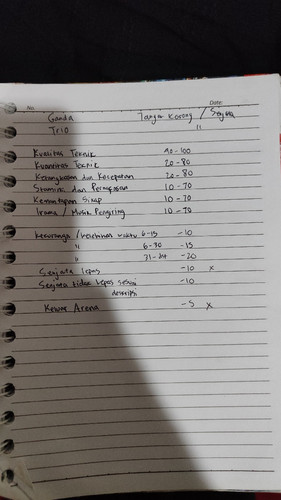 No. Date:
Ganda Tangan Kosong / Senjata
Trio "
Kualitas Teknik 90-100
Kuantitas Teknik 20-80
Ketangkasan dan Kecepatan 20-80
Stamina dan Pernapasan 10-70
Kemantapan Sikap 10-70
Irama / Musik Pengiring 10-70
Kekurangan / kelebihan waktu 6-15 -10
" 6-30 -15
" 31-24 -20
Senjata lepas -10 x
Senjata tidak lepas sesuai -10
deskripsi
Keluar Arena -5 x